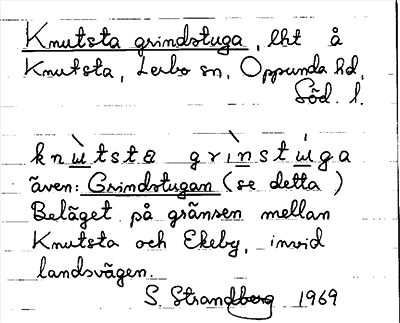 Knutsta grindstuga, lht å
Knutsta, Lerbo sn, Oppunda hd,
Söd. l.
knu̇̀tsta grı̀nstu̇́ga
även: Grindstugan (se detta)
Beläget på gränsen mellan
Knutsta och Ekeby, invid
landsvägen.
S. Strandberg 1969